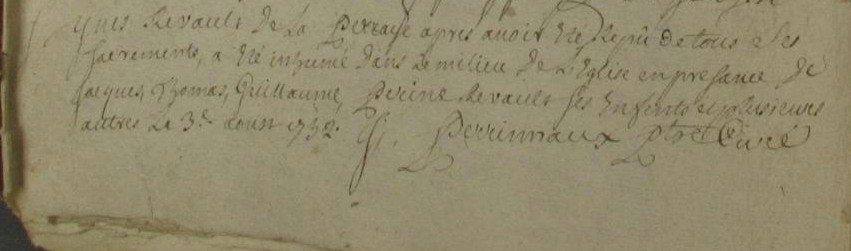 ques Revault de La Perraye apres avoir eté Repû de tous Ses
sacrements, a eté inhumé dans Le milieu de L'Eglise en presance de
jacques, Thomas, Guillaume, Perine Revault ses Enfents et plusieurs
autres Le 3e aoust 1732.
Perrinnaux Ptre Curé